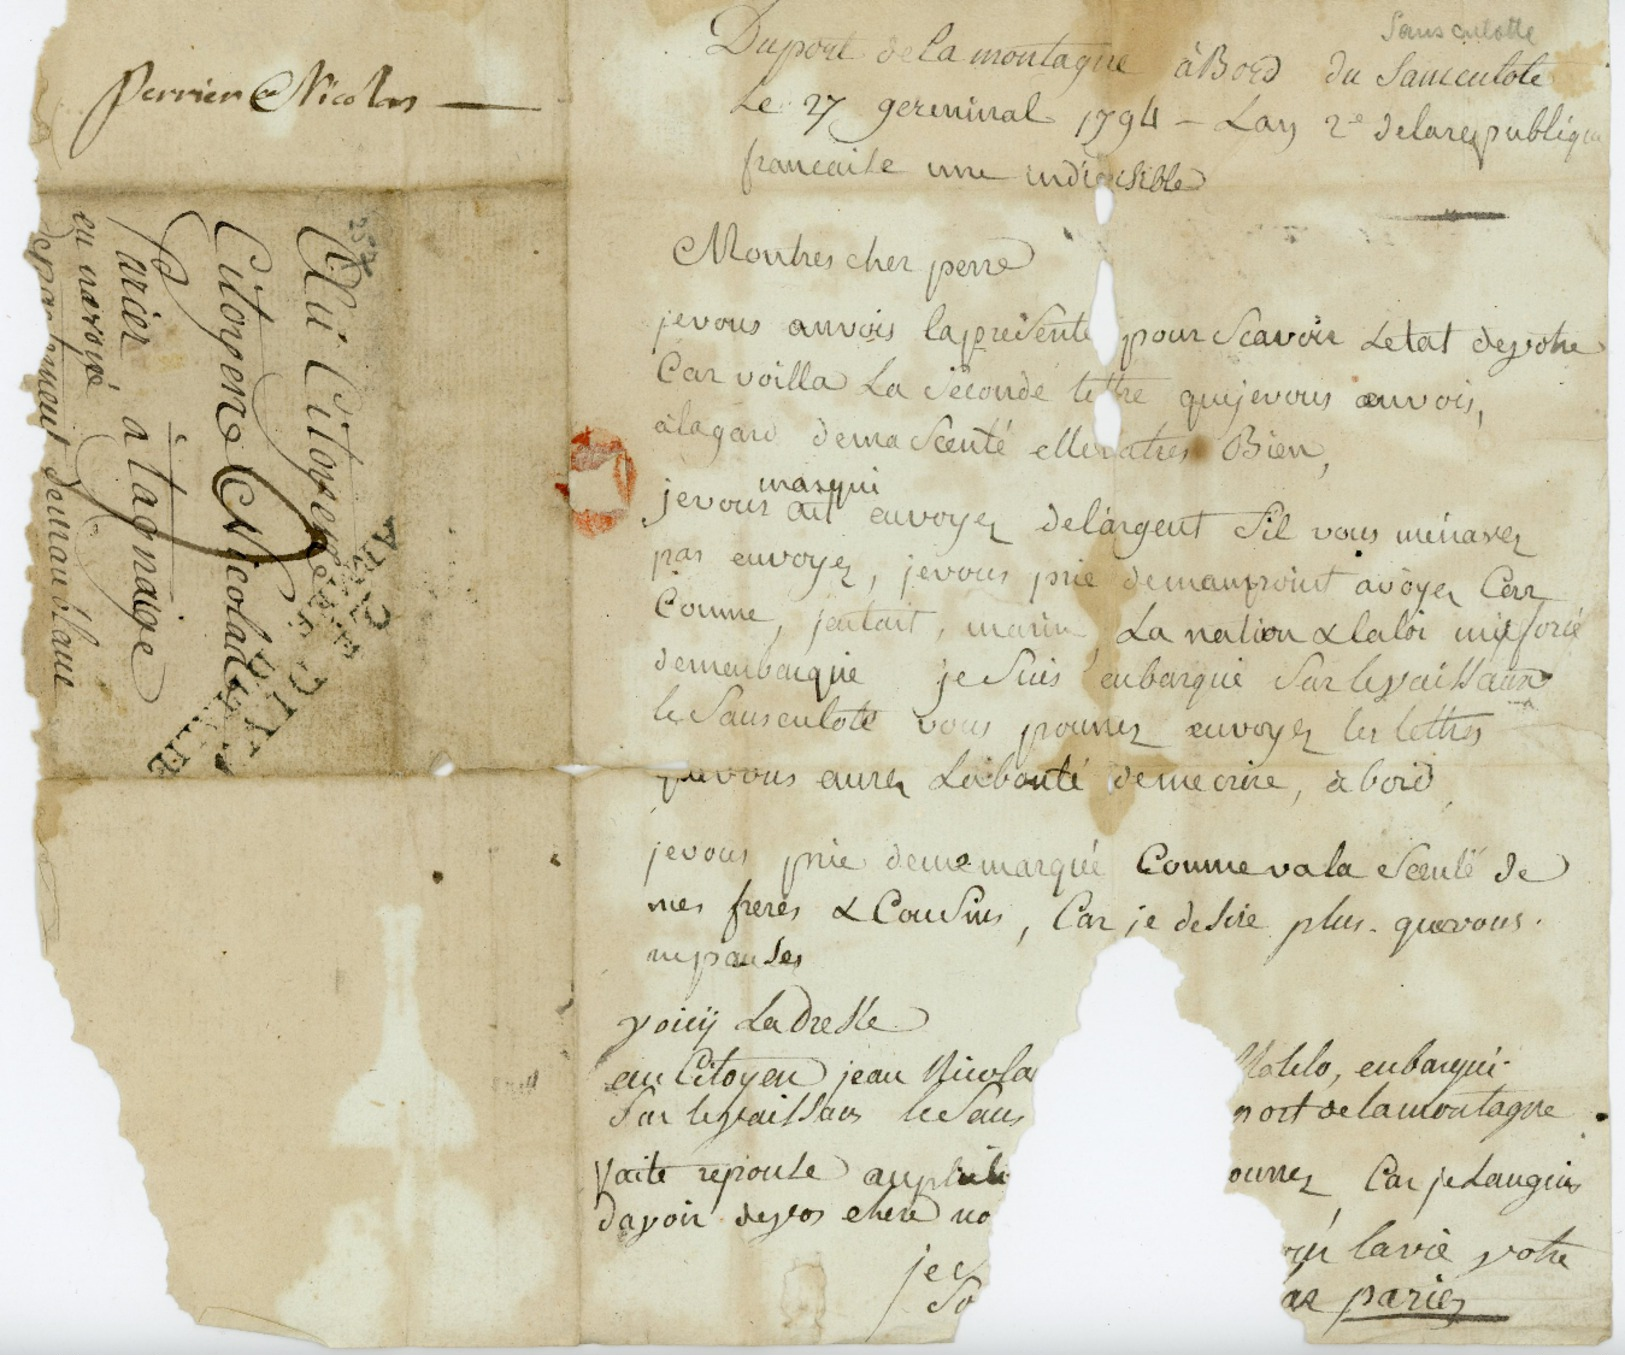 Perrier Nicolas
Au Citoyen
Citoyene Nicolas
parier à lagnaige
en maroipé
departement dumau blanc
Sans culotte
Duport dela montagne àBord du Sansculote
Le 27 germinal 1794 - Lan 2e delarepublique
francaise une indivisible
Montres cher perre
jevous anvois laprésente pour Scavoir Letat devotre
Car voilla La seconde lettre quejevous anvois,
àlagard dema Scenté elleva tres Bien,
marqui
jevous ait envoyer delargent Sil vous ménavez
pas envoyer, jevous prie demanpoint avoyer Car
Comme, jaitait, marin, La nation & laloi mu forcé
demenbarqué jeSuis enbarqué Sur levaissaux
le Sansculote vous pourrez envoyer les lettres
quevous aurez Labonté demecrire, à bord
jevous prie deme marqué Comme vala Scenté de
mes freres & Cousins, Car je desire plus quevous
nepenser
voicij Ladresse
au Citoyen jean Nicolas enbarqué
Sur levaissaux le Sans port delamontagne
Vaite reponse auplutot ourrez Car jeLanguis
davoir devos chere no
je la vie votre
So as parier